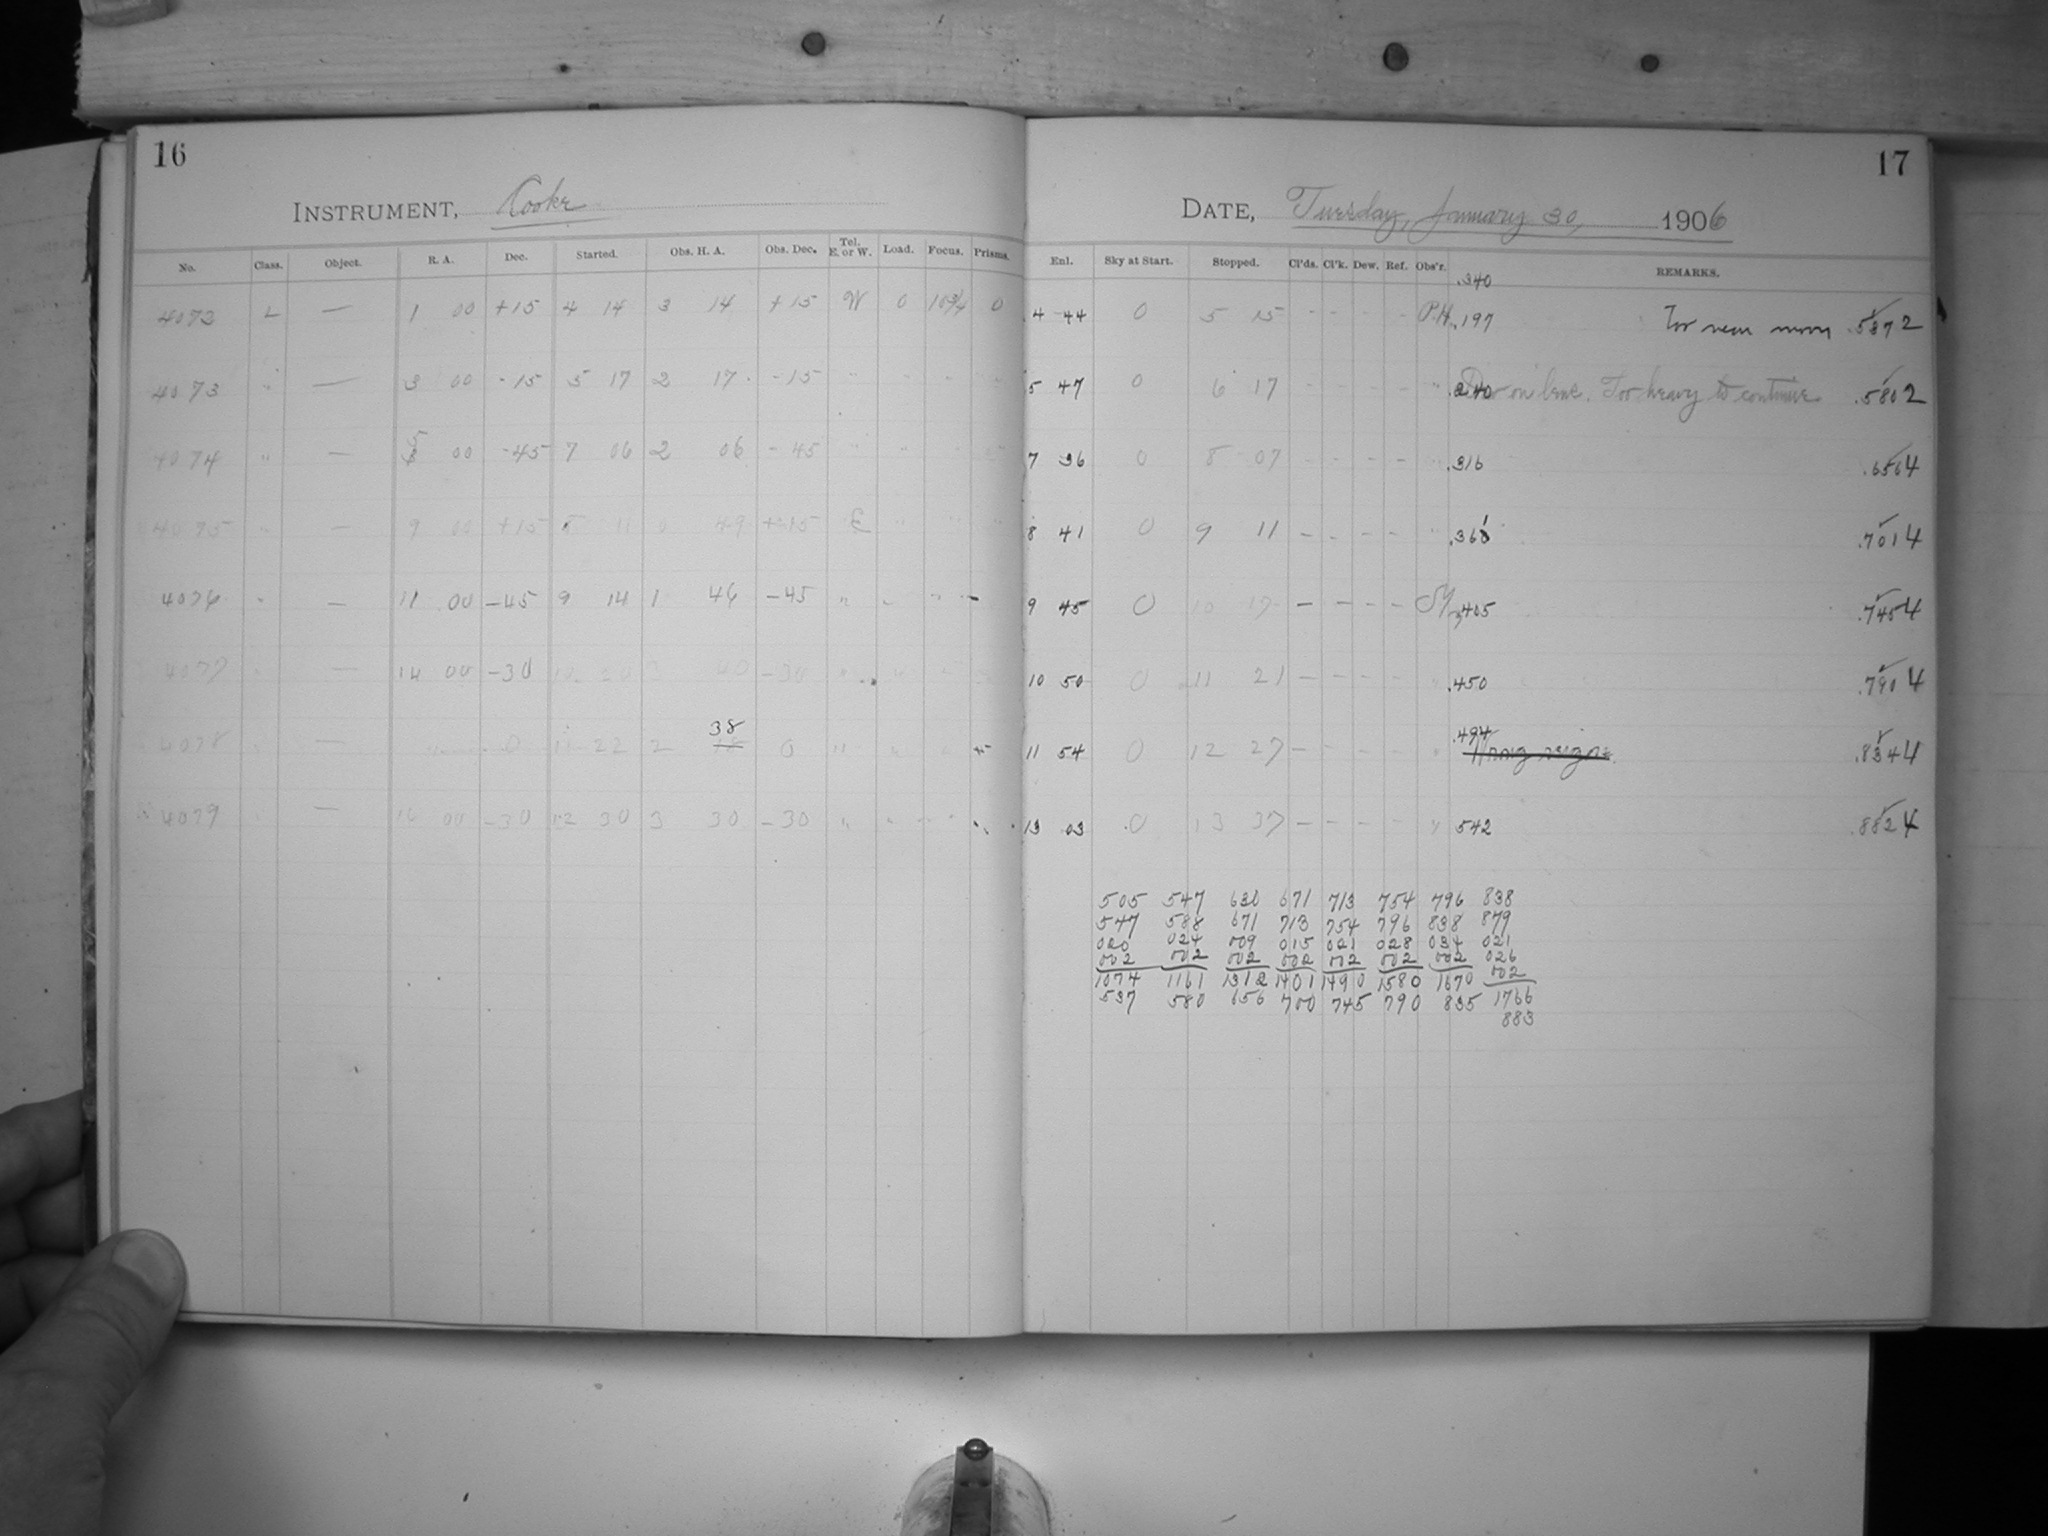 16
INSTRUMENT, Cooke
No. Class. Object. R. A. Dec. Started. Obs. H. A. Obs. Dec. Tel. E. or W. Load. Focus. Prisms.
4073 L — 1 00 +15 4 14 3 14 +15 W 0 0
4073 " — 3 00 -15 5 17 2 17 -15 " " " "
4074 " — 5 00 -45 7 06 2 06 -45 " " " "
4075 " — 9 00 +15 11 0 49 +15 E " "
4076 " — 11 00 -45 9 14 1 46 -45 " " " "
4077 " — 14 00 -30 10 20 3 40 -30 " " "
4078 " — 0 11 22 2 38 0 " " " "
4079 " — 16 00 -30 12 30 3 30 -30 " " " "
17
DATE, Tuesday, January 30, 1906
Enl. Sky at Start. Stopped. Cl'ds. Cl'k. Dew. Ref. Obs'r. REMARKS.
.340
4 44 0 5 15 - - - - P.H. .197 Too near moon .5372
5 47 0 6 17 - - - - " .240 Dew on lens. Too heavy to continue .5802
7 36 0 8 07 - - - - .316 .6564
8 41 0 9 11 - - - - " .361 .7014
9 45 0 10 17 - - - - .405 .7454
10 50 0 11 21 - - - - .450 .7904
11 54 0 12 27 - - - - " .494 Wrong region. .8344
13 03 0 13 37 - - - - " 542 .8824
505 547 630 671 713 754 796 838
547 588 671 713 754 796 838 879
020 024 009 015 021 028 034 021
002 002 002 002 002 002 002 026
1074 1161 1312 1401 1490 1580 1670 002
537 580 656 700 745 790 835 1766
883